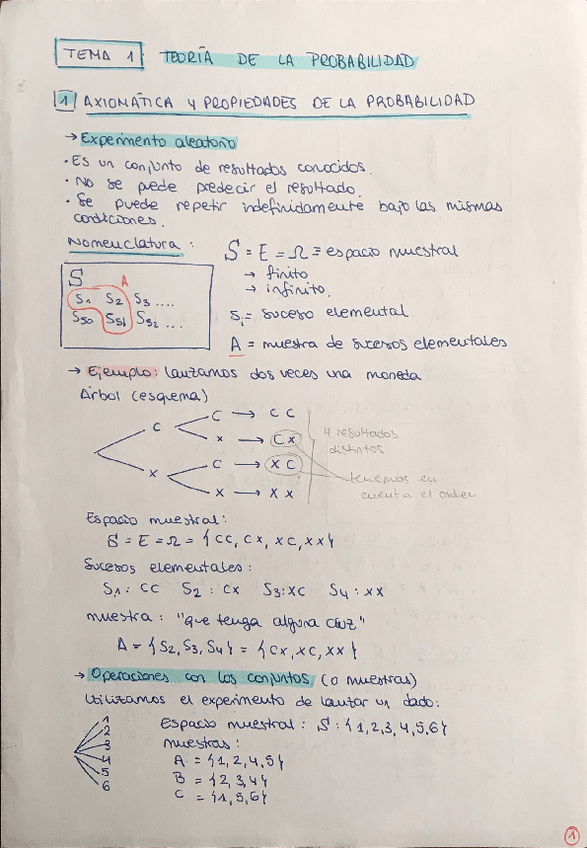 TEMA 1 TEORÍA DE LA PROBABILIDAD
1 AXIOMÁTICA Y PROPIEDADES DE LA PROBABILIDAD
→ Experimento aleatorio
· Es un conjunto de resultados conocidos.
· No se puede predecir el resultado.
· Se puede repetir indefinidamente bajo las mismas
condiciones.
Nomenclatura :
S = E = Ω ≡ espacio muestral
→ finito
→ infinito.
Si = suceso elemental
A = muestra de sucesos elementales
S A
S1 S2 S3 ....
S50 S51 S52 ...
→ Ejemplo: lanzamos dos veces una moneda
Árbol (esquema)
C C → C C
x → C x
x C → x C
x → x x
4 resultados
distintos
tenemos en
cuenta el orden
Espacio muestral:
S = E = Ω = {CC, Cx, xC, xx}
Sucesos elementales :
S1 : CC S2 : Cx S3 : xC S4 : xx
muestra : "que tenga alguna cruz"
A = {S2, S3, S4} = {Cx, xC, xx}
→ Operaciones con los conjuntos (o muestras)
Utilizamos el experimento de lanzar un dado:
1
2
3
4
5
6
Espacio muestral : S : {1,2,3,4,5,6}
muestras :
A = {1, 2, 4, 5}
B = {2, 3, 4}
C = {1, 5, 6}
1